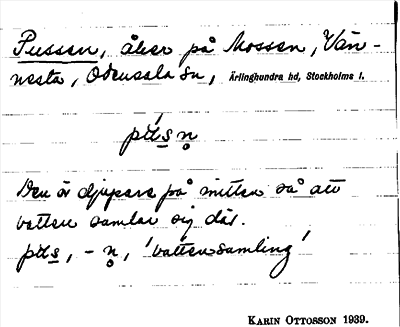 Pussen, åker på Mossen, Vän-
nesta, Odensala sn, Ärlinghundra hd, Stockholms l.
Den är djupare på mitten så att
vatten samlar sig där.
'vattensamling'
KARIN OTTOSSON 1939.